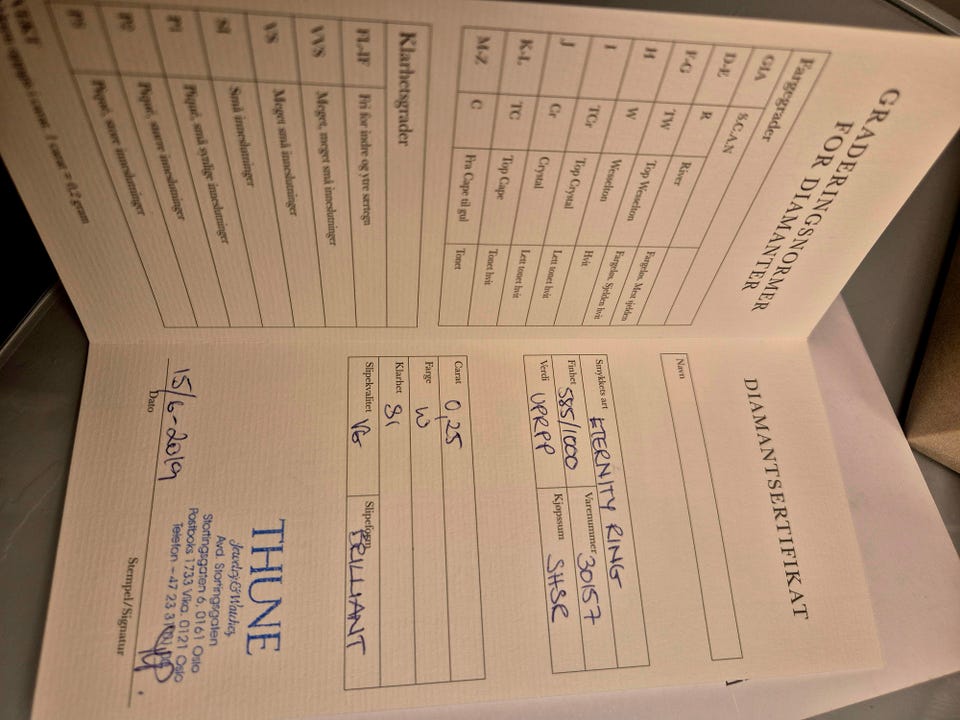 GRADERINGSNORMER
FOR DIAMANTER
Fargegrader
GIA S.C.A.N
D-E R River
F-G TW Top Wesselton Fargeløs. Mest sjelden
H W Wesselton Fargeløs. Sjelden hvit
I TCr Top Crystal Hvit
J Cr Crystal Lett tonet hvit
K-L TC Top Cape Lett tonet hvit
M-Z C Fra Cape til gul Tonet hvit
Tonet
Klarhetsgrader
FL-IF Fri for indre og ytre særtegn
VVS Meget, meget små inneslutninger
VS Meget små inneslutninger
SI Små inneslutninger
P1 Piqué, små synlige inneslutninger
P2 Piqué, større inneslutninger
P3 Piqué, store inneslutninger
i carat. 1 carat = 0,2 gram
DIAMANTSERTIFIKAT
Navn
Smykkets art ETERNITY RING
Finhet 585/1000 Varenummer 30157
Verdi Kjøpssum
Carat 0,25
Farge W
Klarhet SI
Slipekvalitet VG Slipeform BRILLIANT
THUNE
Jewelry & Watches
Avd. Stortingsgaten
Stortingsgaten 6, 0161 Oslo
Postboks 1733 Vika, 0121 Oslo
Telefon - 47 23 31
15/6-2019
Dato Stempel/Signatur